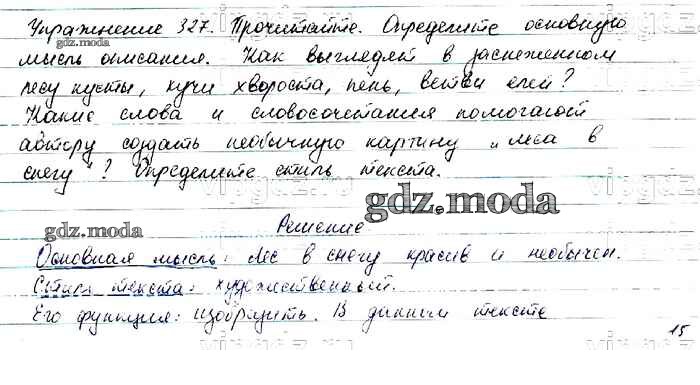 Упражнение 327. Прочитайте. Определите основную
gdz.moda
мысль описания. Как выглядят в заснеженном
лесу кусты, кучи хвороста, пень, ветви елей?
Какие слова и словосочетания помогают
автору создать необычную картину „леса в
снегу"? Определите стиль текста.
gdz.moda
gdz.moda
Решение
Основная мысль: лес в снегу красив и необычен.
Стиль текста: художественный.
Его функция: изобразить. В данном тексте
15